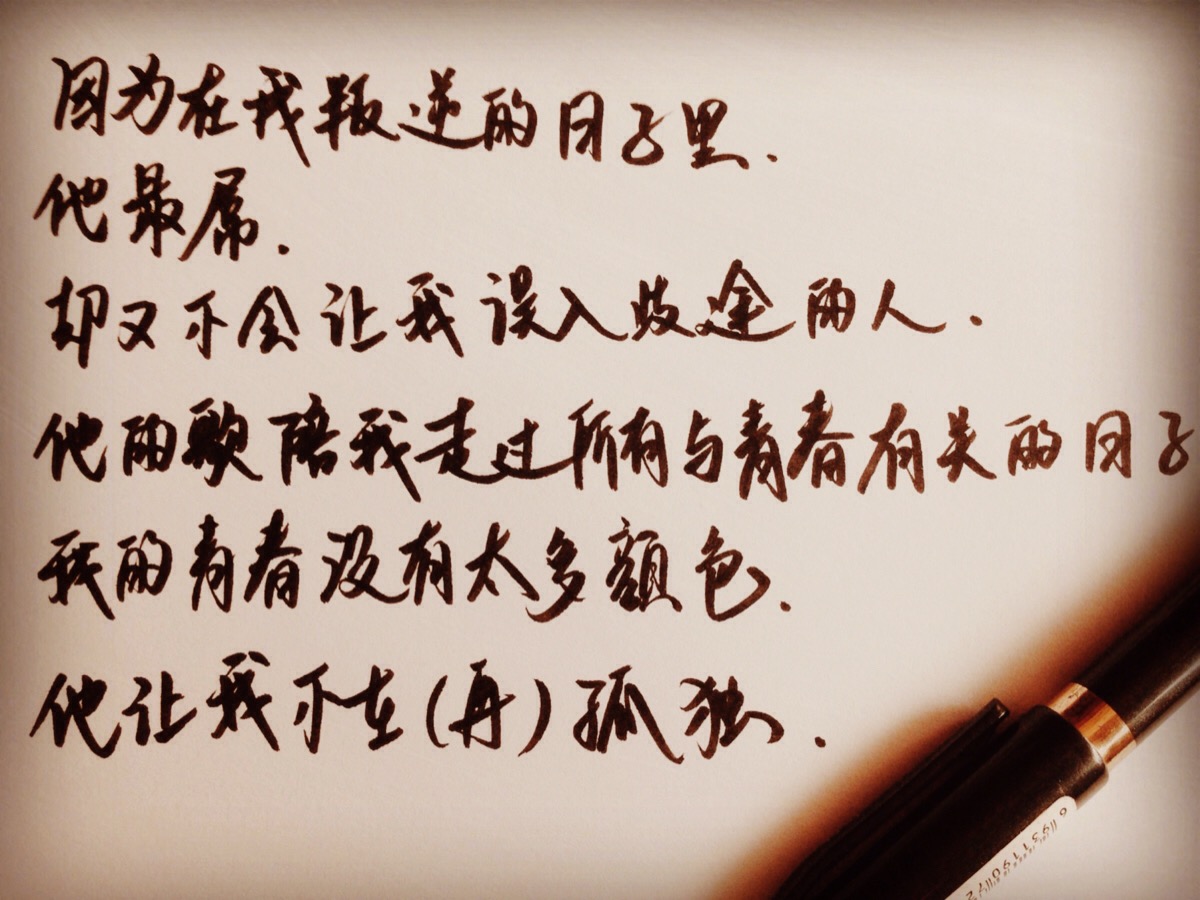 因为在我叛逆的日子里.
他最屌.
却又不会让我误入歧途的人.
他的歌陪我走过所有与青春有关的日子
我的青春没有太多颜色.
他让我不在(再)孤独.